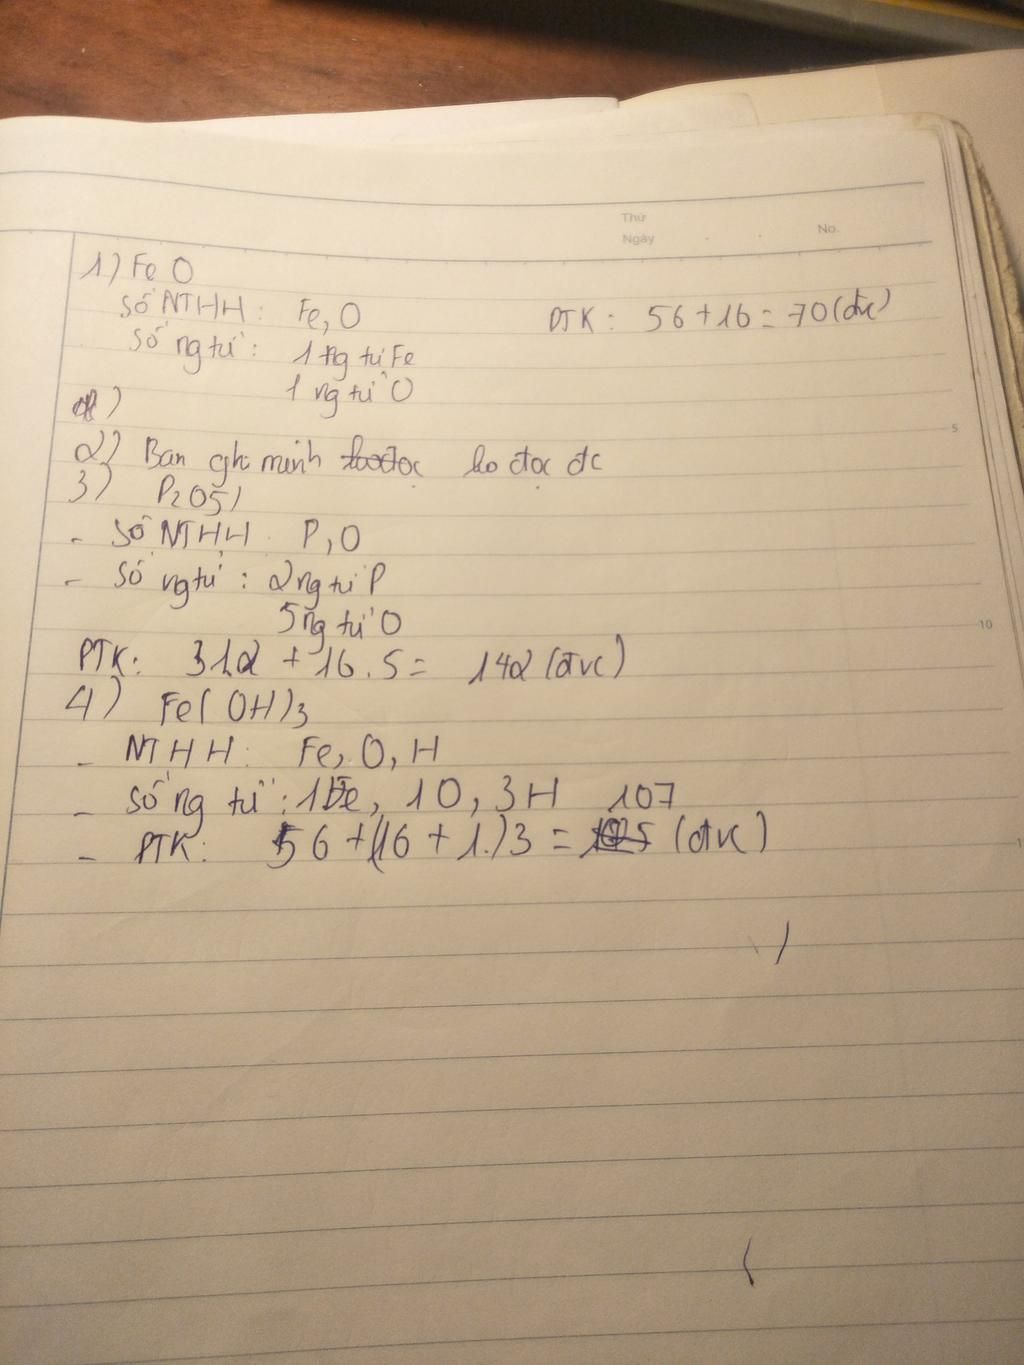 Thứ
Ngày
No.
1) FeO
Số NTHH: Fe, O PTK: 56+16=70(đvc)
Số ng tử: 1 ng tử Fe
1 ng tử O
2) Bạn ghi mình ko đọc đc
3) P2O5)
- Số NTHH P, O
- Số ng tử: 2 ng tử P
5 ng tử O
PTK: 31.2 + 16.5 = 142 (đvc)
4) Fe(OH)3
- NTHH: Fe, O, H
- Số ng tử: 1Fe, 1O, 3H 107
- PTK: 56+(16+1.)3 = (đvc)
5
10